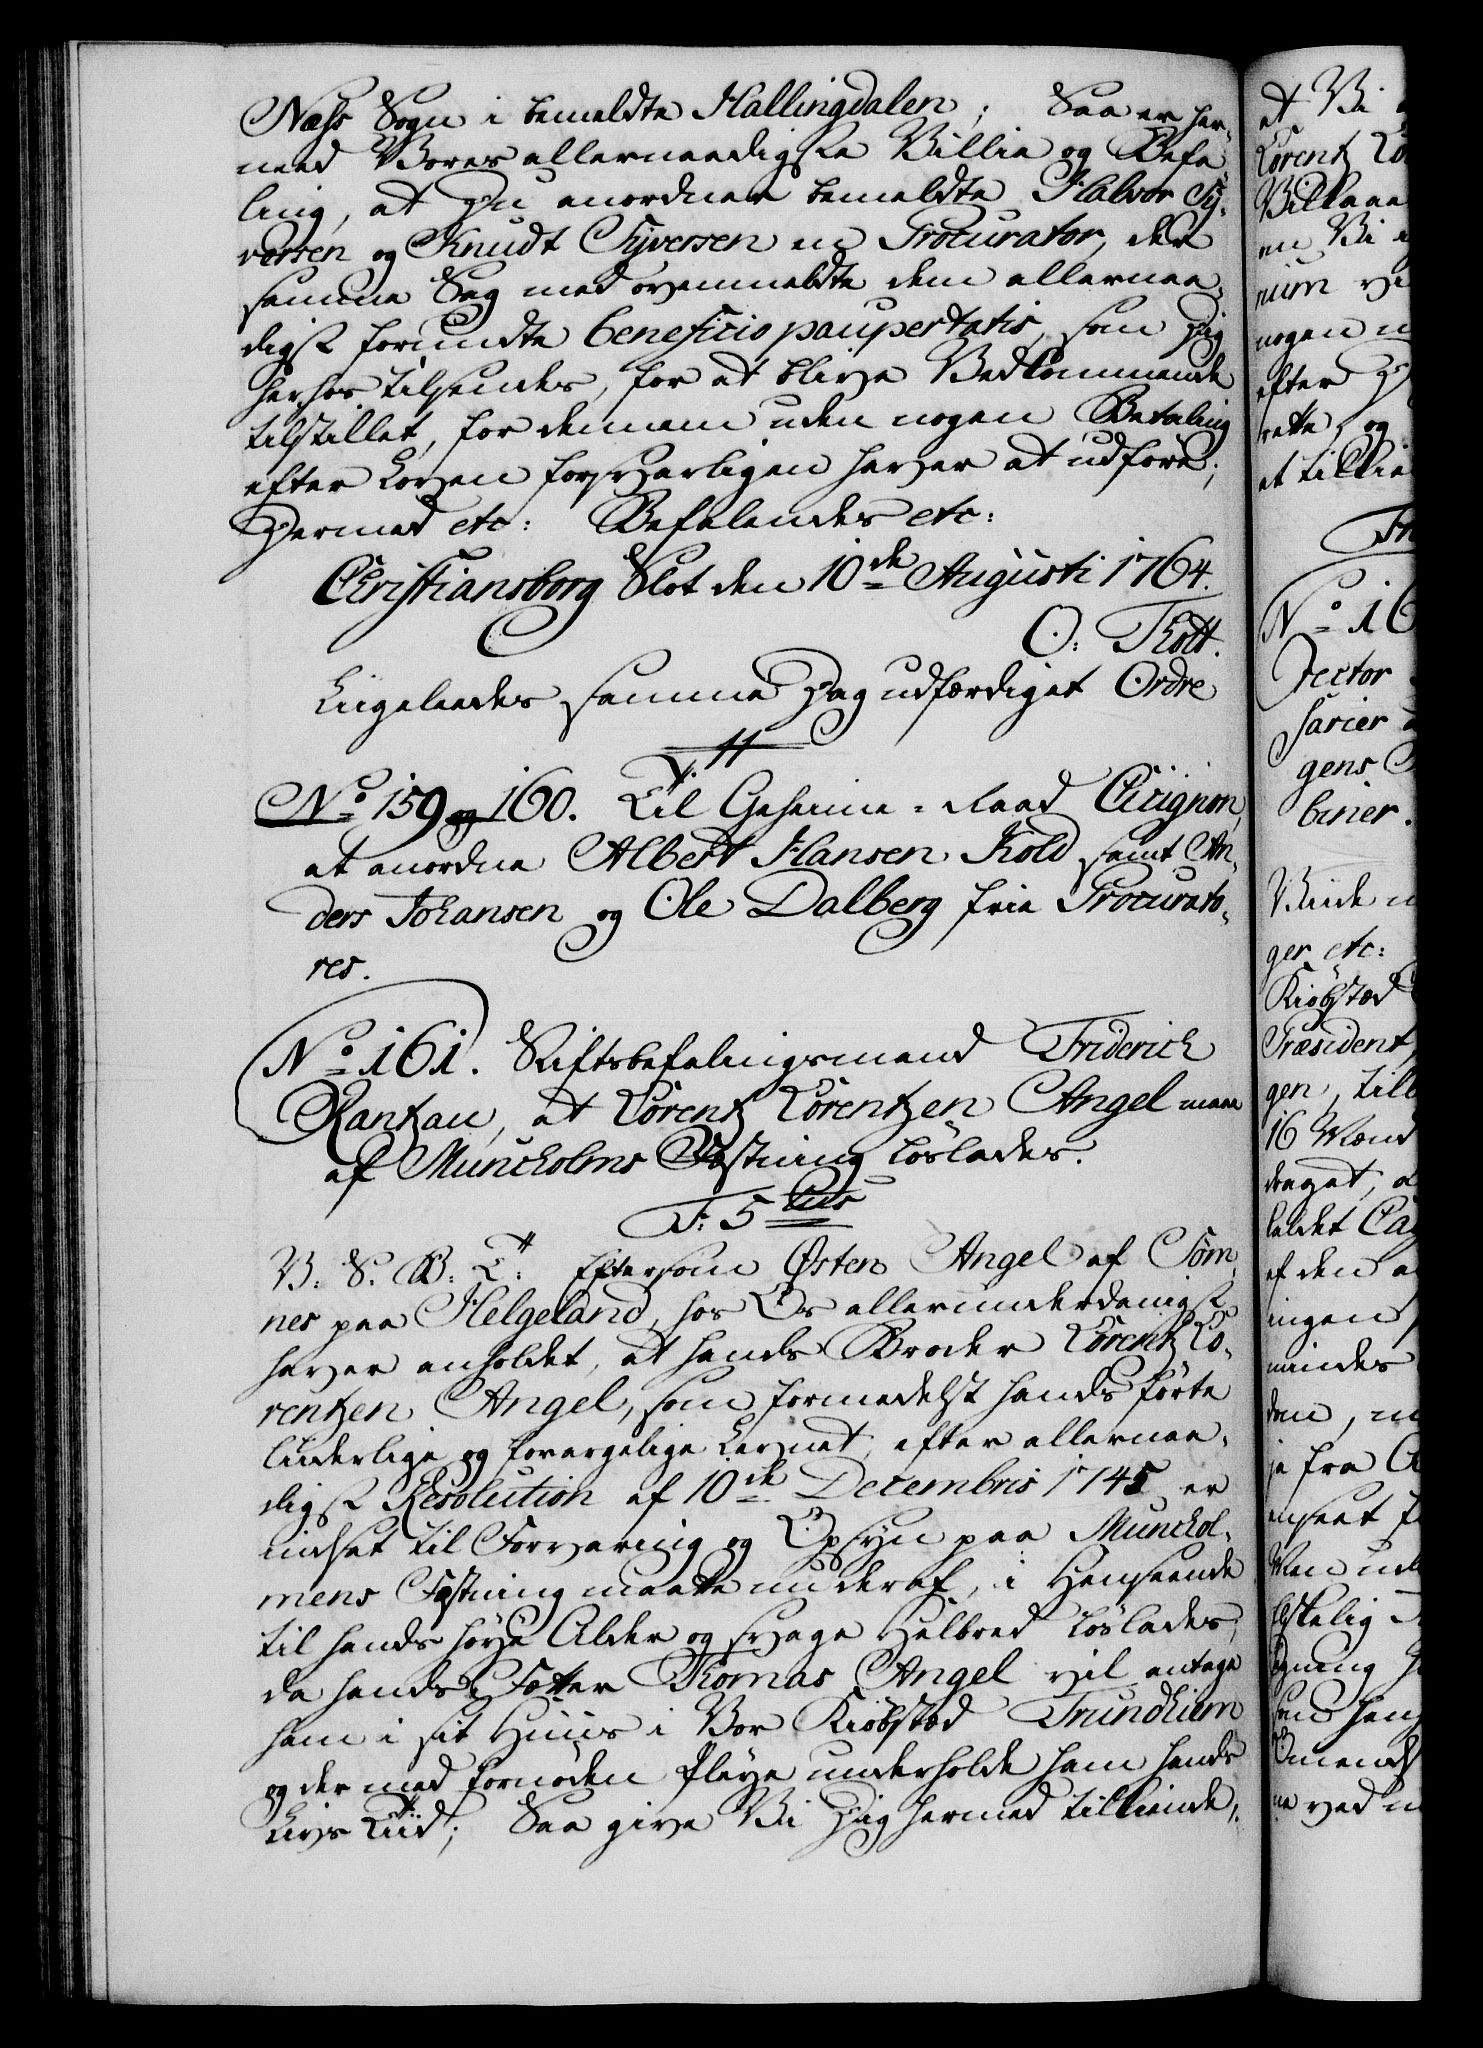 Næss Sogn i bemeldte Hallingdalen; Saa er her,
med Vores allernaadigste Villie og Befa,
ling, at Du anordner bemeldte Halvor Sy,
versen og Knudt Syversen en Procurator, der
samme Sag med ovenmeldte dem allernaa,
digst forundte beneficio paupertatis, som Dig
herhos tilsendes, for at blive Vedkommende
tilstillet, for dennem uden nogen Betaling
efter Loven forsvarligen haver at udføre;
Dermed etc: Befalendes etc:
Christiansborg Slot den 10de Augusti 1764.
O: Thott.
Liigeleedes samme Dag udfærdiget Ordre
No 159 og 160. Til Geheime-Raad Cicignon,
at anordne Albert Hansen Kold samt An,
ders Johansen og Ole Dalberg frie Procurato,
res.
No 161. Stiftsbefalingsmand Friderich
Rantzau, at Lorentz Lorentzen Angel maae
af Munckholms Fæstning løslades.
F: 5tus
V: S: G: T: Eftersom Østen Angel af Søm,
nes paa Helgeland, hos Os allerunderdanigst
haver anholdet, at hands Broder Lorentz Lo,
rentzen Angel, som formedelst hands førte
liderlige og forargelige Levnet, efter allernaa,
digst Resolution af 10de Decembris 1745 er
indsat til Forvaring og Opsyn paa Munckhol,
mens Fæstning maatte nu deraf, i Henseende
til hands høye Alder og svage Helbred løslades;
da hands Fetter Thomas Angel vil antage
ham i sit Huus i Vor Kiøbstæd Trundhiem
og der med fornøden Pleye underholde ham hands
Livs Tiid; Saa give Vi Dig hermed tilkiende,
at Vi
Lorentz Lo
Villaae
en Vi
nium
nogen
efter
rette, og
at tillie
No 16
rector
sarier
gens
binier.
ger etc:
Kiøbstæd
Præsident,
gen, till
16 Mænd
draget,
af den
ingen
mindes
dem,
je fra